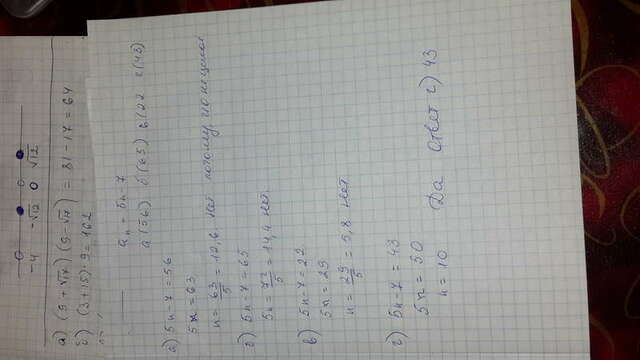 -4 -√12 0 √12
а) (9+√17)(9-√17) = 81-17 = 64
б) (3+15)·9=162
aₙ = 5n-7
а(56) б(65) в(22 г(43)
а) 5n-7=56
5n=63
n = 63/5 = 12,6 Нет потому, что не целое
б) 5n-7=65
5n = 72/5 = 14,4 Нет.
в) 5n-7=22
5n=29
n = 29/5 = 5,8 Нет
г) 5n-7=43
5n=50
n=10 Да Ответ г) 43